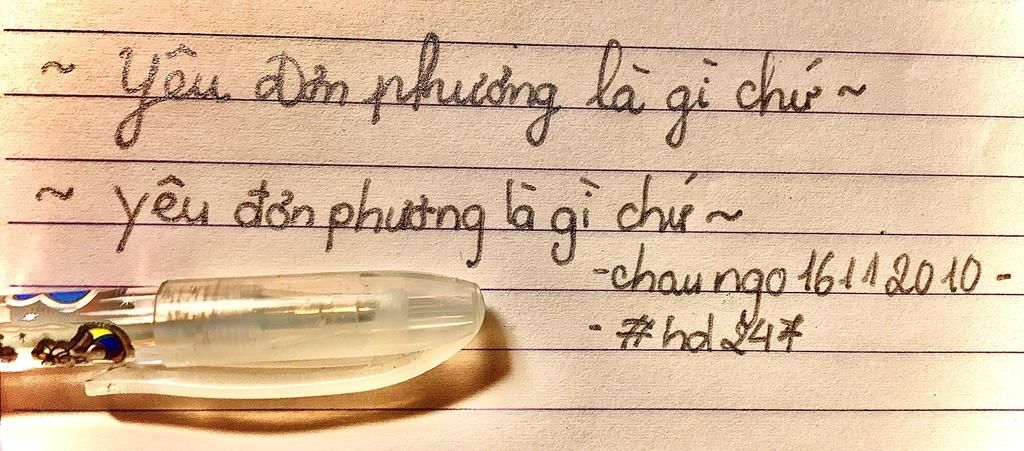 ~ Yêu Đơn phương là gì chứ ~
~ yêu đơn phương là gì chứ ~
- chau ngo 16112010 -
- #hd247